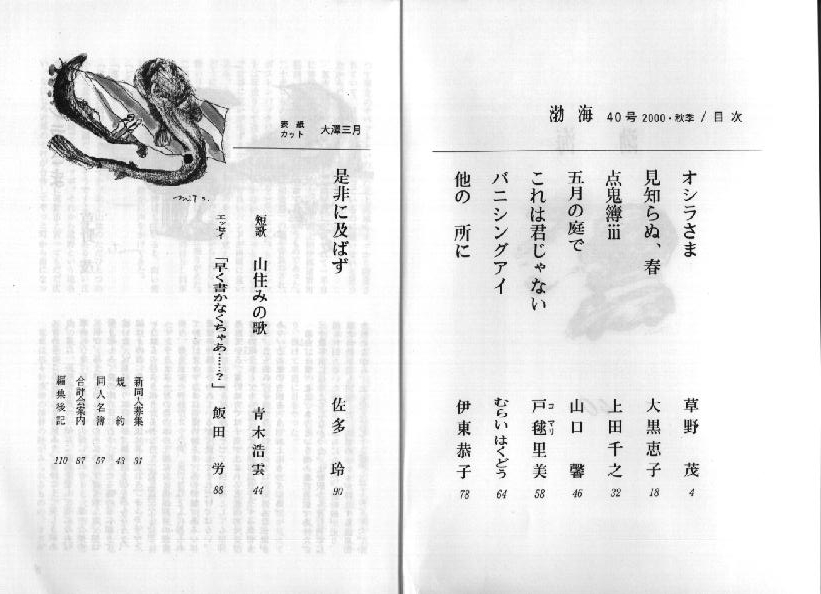 渤海 40号 2000・秋季/目次
オシラさま 草野 茂 4
見知らぬ、春 大黒恵子 18
点鬼簿iii 上田千之 32
五月の庭で 山口 馨 46
これは君じゃない 戸毬里美 コマリ 58
バニシングアイ むらいはくどう 64
他の 所に 伊東恭子 78
表紙 カット 大澤三月
是非に及ばず 佐多 玲 90
短歌 山住みの歌 青木浩雲 44
エッセイ 「早く書かなくちゃあ……?」 飯田 労 88
新同人募集 31
規 約 43
同人名簿 57
合評会案内 87
編集後記 110